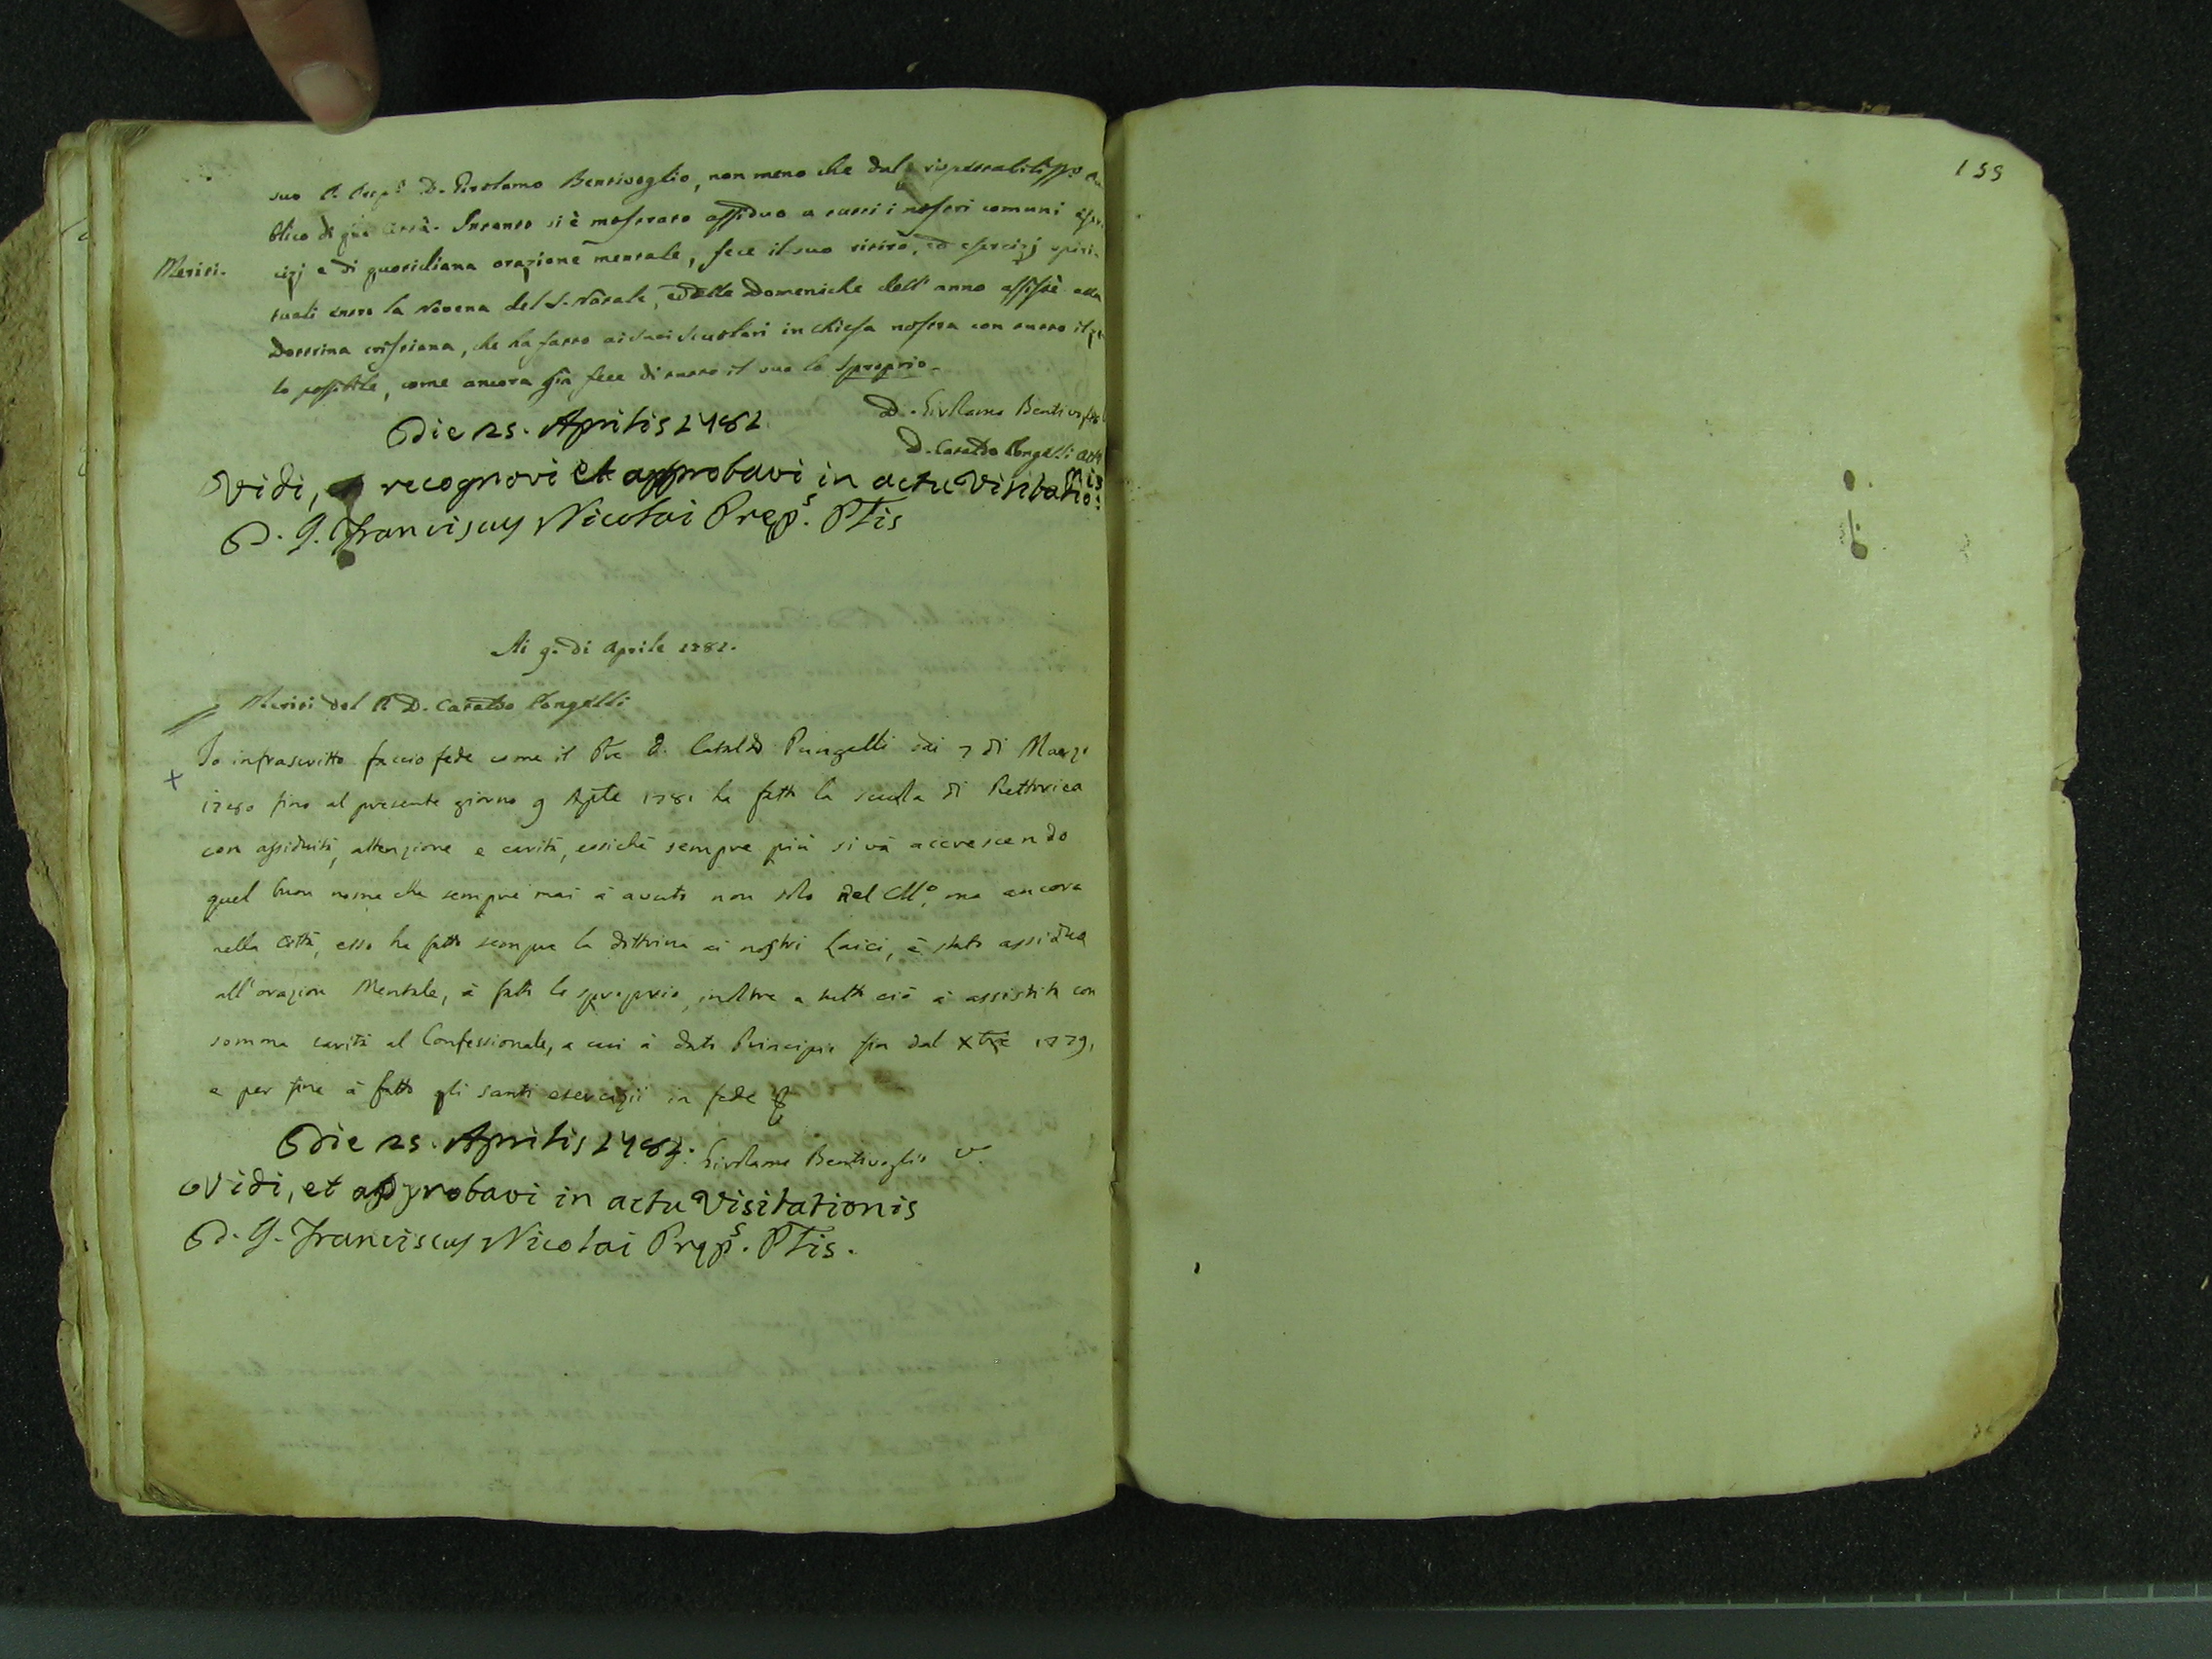 suo P. Prep.to D. Girolamo Bentivoglio, non meno che dal rispettabiliss.o
blico di q.ta Città. Intanto si è mostrato assiduo a tutti i nostri comuni eser-
Meriti. cizj e di quotidiana orazione mentale, fece il suo ritiro, ed esercizj spiri-
tuali entro la Novena del S. Natale, e delle Domeniche dell'anno assistè alla
Dottrina cristiana, che ha fatto ai suoi Scuolari in chiesa nostra con tutto il ze
lo possibile, come ancora già fece di tutto il suo lo Sproprio.
D. Girolamo Bentivoglio
Die 25. Aprilis 1781
D. Cataldo Pongelli
Vidi, recognovi et approbavi in actu Visitatio:nis
D. J. Franciscus Nicolai Prep.s Ptis
Ai 9. di Aprile 1781.
Meriti del P. D. Cataldo Pongelli
+ Io infrascritto faccio fede come il Pre D. Cataldo Pungelli dai 7 di Marzo
1780 fino al presente giorno 9 Aple 1781 ha fatto la scuola di Rettorica
con assiduità, attenzione e carità, cosichè sempre più si và accrescendo
quel buon nome che sempre mai à avuto non solo nel Coll.o, ma ancora
nella Città, esso ha fatto sempre la dottrina ai nostri Laici, è stato assiduo
all'orazion Mentale, à fatto lo sproprio, inoltre a tutto ciò à assistito con
somma carità al Confessionale, a cui à dato Principio fin dal Xbre 1779,
e per fine à fatto gli santi esercizii in fede
Die 25. Aprilis 1781.
Girolamo Bentivoglio
Vidi, et approbavi in actu Visitationis
D. J. Franciscus Nicolai Prep.s Ptis.
159